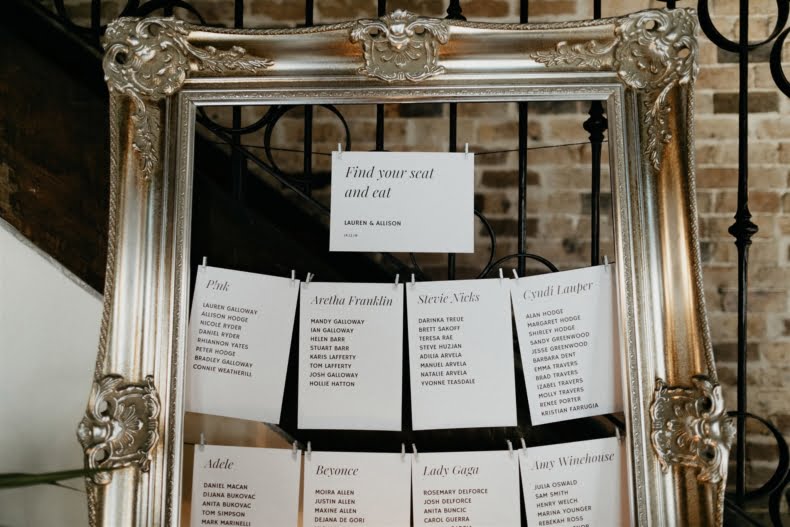 Find your seat
and eat
LAUREN & ALLISON
P!nk
LAUREN GALLOWAY
ALLISON HODGE
NICOLE RYDER
DANIEL RYDER
RHIANNON YATES
PETER HODGE
BRADLEY GALLOWAY
CONNIE WEATHERILL
Aretha Franklin
MANDY GALLOWAY
IAN GALLOWAY
HELEN BARR
STUART BARR
KARIS LAFFERTY
TOM LAFFERTY
JOSH GALLOWAY
HOLLIE HATTON
Stevie Nicks
DARINKA TREUE
BRETT SAKOFF
TERESA RAE
STEVE HUZJAN
ADILIA ARVELA
MANUEL ARVELA
NATALIE ARVELA
YVONNE TEASDALE
Cyndi Lauper
ALAN HODGE
MARGARET HODGE
SHIRLEY HODGE
SANDY GREENWOOD
JESSE GREENWOOD
BARBARA DENT
EMMA TRAVERS
BRAD TRAVERS
IZABEL TRAVERS
MOLLY TRAVERS
RENEE PORTER
KRISTIAN FARRUGIA
Adele
DANIEL MACAN
DIJANA BUKOVAC
ANITA BUKOVAC
TOM SIMPSON
MARK MARINELLI
Beyonce
MOIRA ALLEN
JUSTIN ALLEN
MAXINE ALLEN
DEJANA DE GORI
Lady Gaga
ROSEMARY DELFORCE
JOSH DELFORCE
ANITA BUNCIC
CAROL GUERRA
Amy Winehouse
JULIA OSWALD
SAM SMITH
HENRY WELCH
MARINA YOUNGER
REBEKAH ROSS